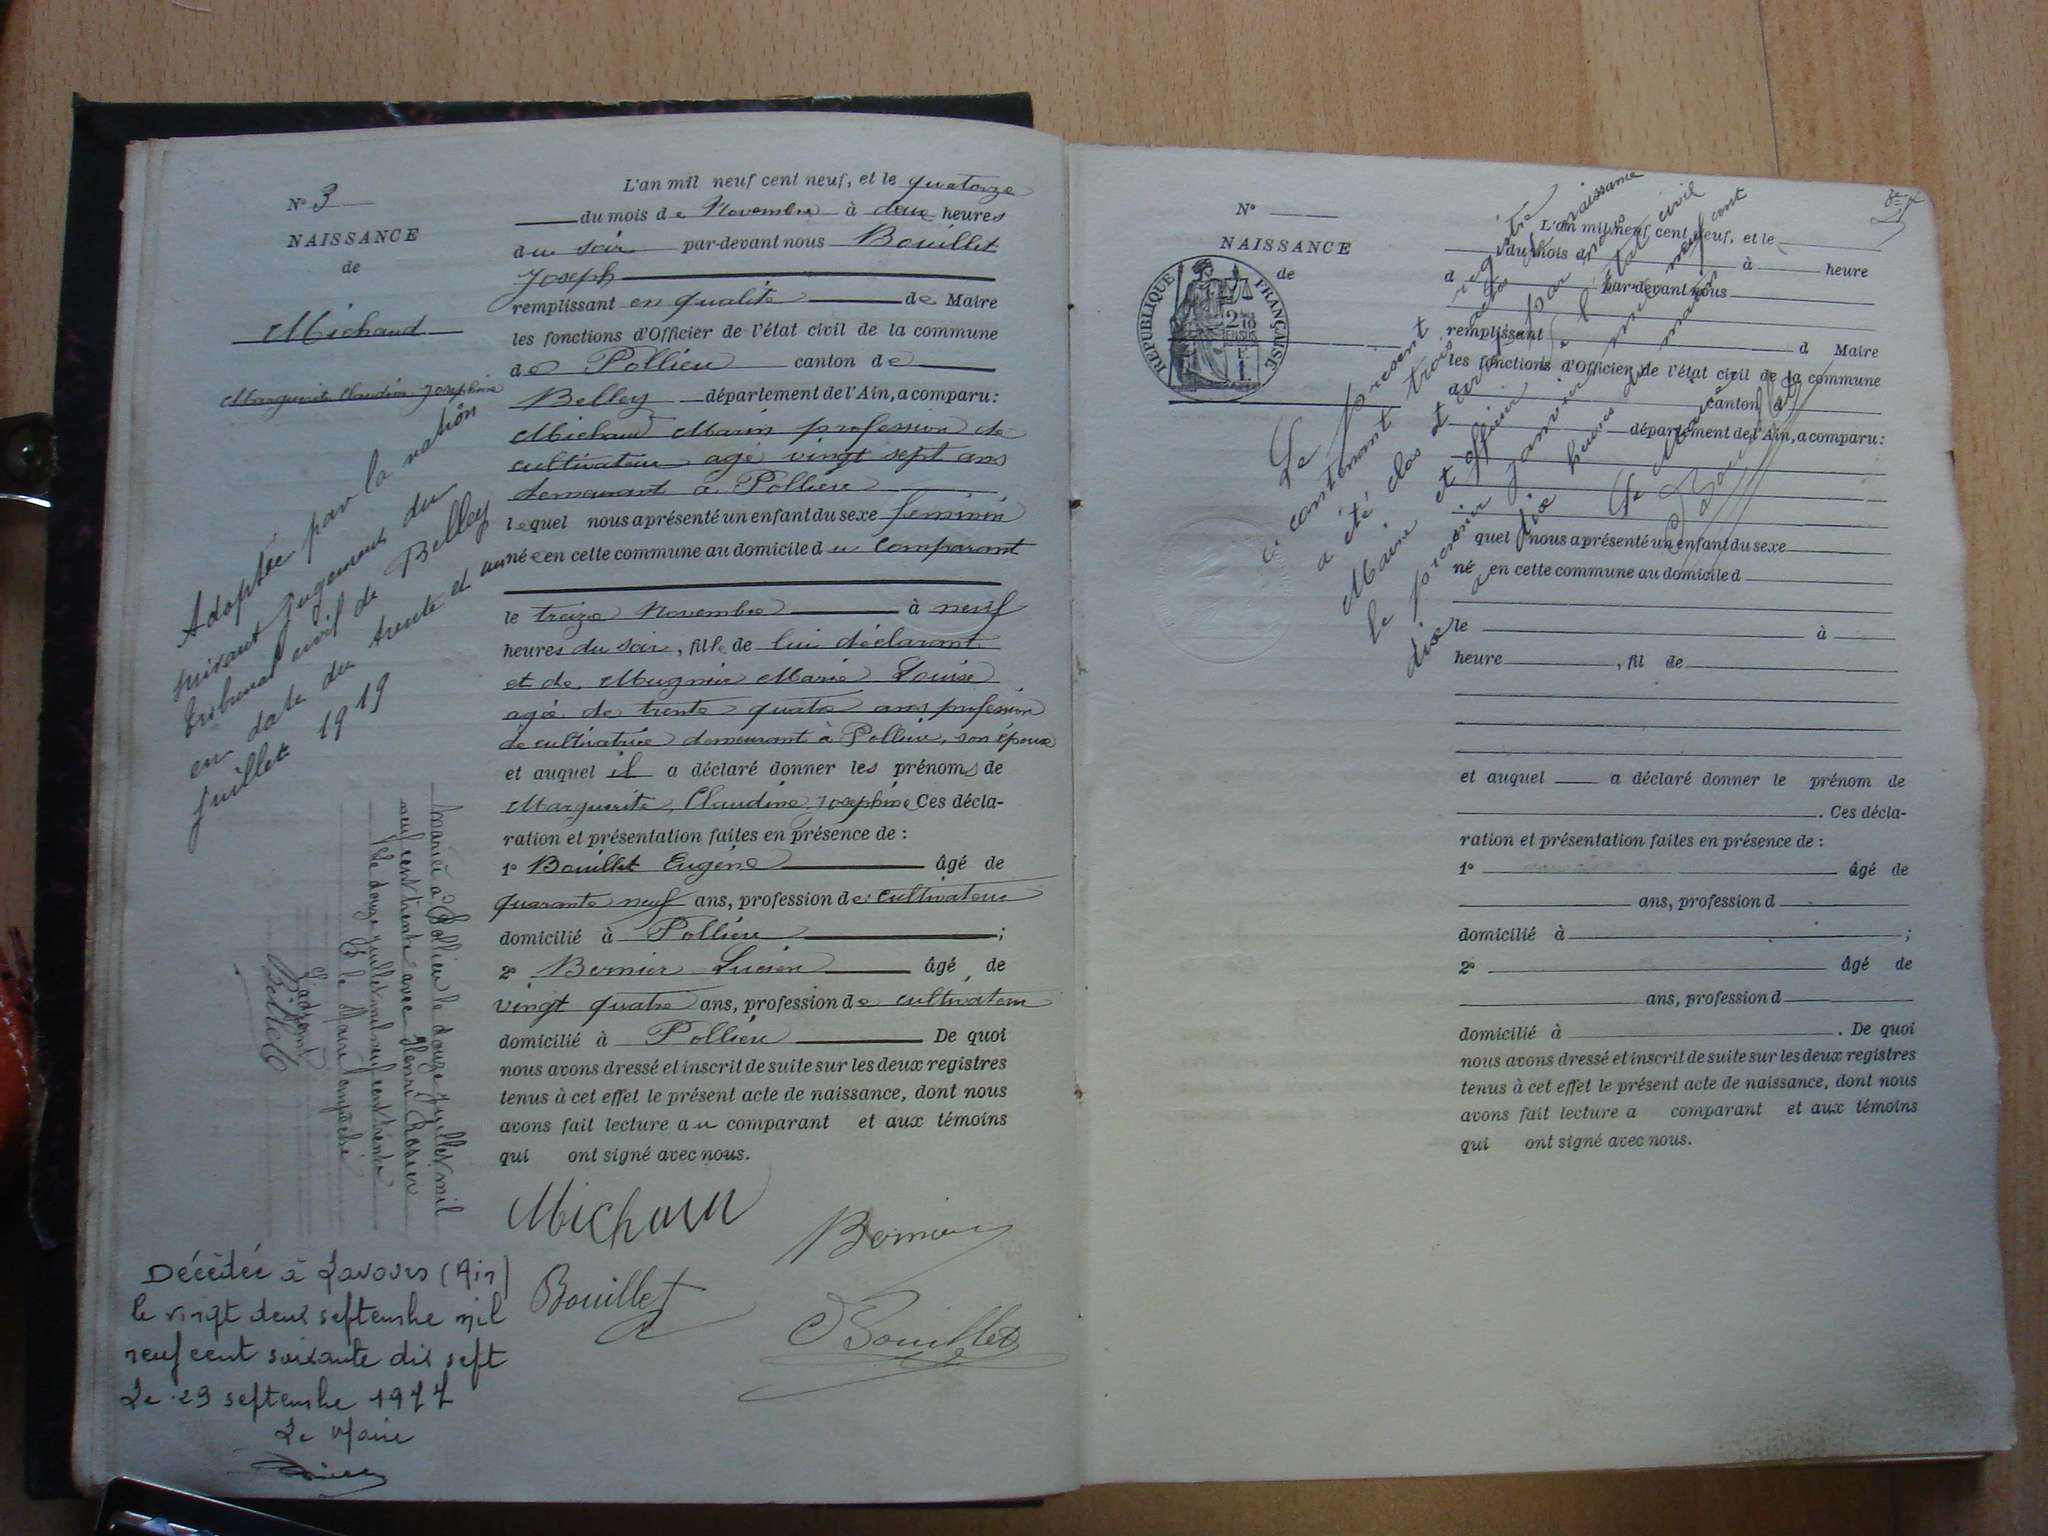 N° 3
NAISSANCE
de
Michaud
Marguerite Claudine Joséphine
Adoptée par la nation
suivant jugement du
tribunal civil de Belley
en date du trente et un
juillet 1919
Mariée à Pollieu le douze juillet mil
neuf cent trente avec Henri Rosier
Le douze juillet mil neuf cent trente
P. le Maire empêché
L'adjoint
Billet
Décédée à Lavours (Ain)
le vingt deux septembre mil
neuf cent soixante dix sept
Le 29 septembre 1977
Le Maire
L'an mil neuf cent neuf, et le quatorze
du mois de Novembre à deux heures
du soir par-devant nous Bouillet
Joseph
remplissant en qualité de Maire
les fonctions d'Officier de l'état civil de la commune
de Pollieu canton de
Belley département de l'Ain, a comparu :
Michaud Marin profession de
cultivateur agé vingt sept ans
demeurant à Pollieu
lequel nous a présenté un enfant du sexe féminin
née en cette commune au domicile du comparant
le treize Novembre à neuf
heures du soir, fille de lui déclarant
et de Mugnier Marie Louise
agée de trente quatre ans profession
de cultivatrice demeurant à Pollieu, son épouse
et auquel il a déclaré donner les prénoms de
Marguerite, Claudine, Joséphine Ces décla-
ration et présentation faites en présence de :
1° Bouillet Eugène âgé de
quarante neuf ans, profession de cultivateur
domicilié à Pollieu ;
2° Bernier Lucien âgé de
vingt quatre ans, profession de cultivateur
domicilié à Pollieu De quoi
nous avons dressé et inscrit de suite sur les deux registres
tenus à cet effet le présent acte de naissance, dont nous
avons fait lecture au comparant et aux témoins
qui ont signé avec nous.
Michaud
Bernier
Bouillet
Bouillet
N°
NAISSANCE
de
RÉPUBLIQUE FRANÇAISE
Le présent registre
contenant trois actes de naissance
a été clos et arrêté par nous
Maire et officier de l'état civil
le premier janvier mil neuf cent
dix à dix heures du matin
Le Maire
Bouillet
L'an mil neuf cent neuf, et le
du mois d à heure
d par-devant nous
remplissant d Maire
les fonctions d'Officier de l'état civil de la commune
d canton d
département de l'Ain, a comparu :
quel nous a présenté un enfant du sexe
né en cette commune au domicile d
le à
heure , fil de
et auquel a déclaré donner le prénom de
. Ces décla-
ration et présentation faites en présence de :
1° âgé de
ans, profession d
domicilié à ;
2° âgé de
ans, profession d
domicilié à . De quoi
nous avons dressé et inscrit de suite sur les deux registres
tenus à cet effet le présent acte de naissance, dont nous
avons fait lecture a comparant et aux témoins
qui ont signé avec nous.